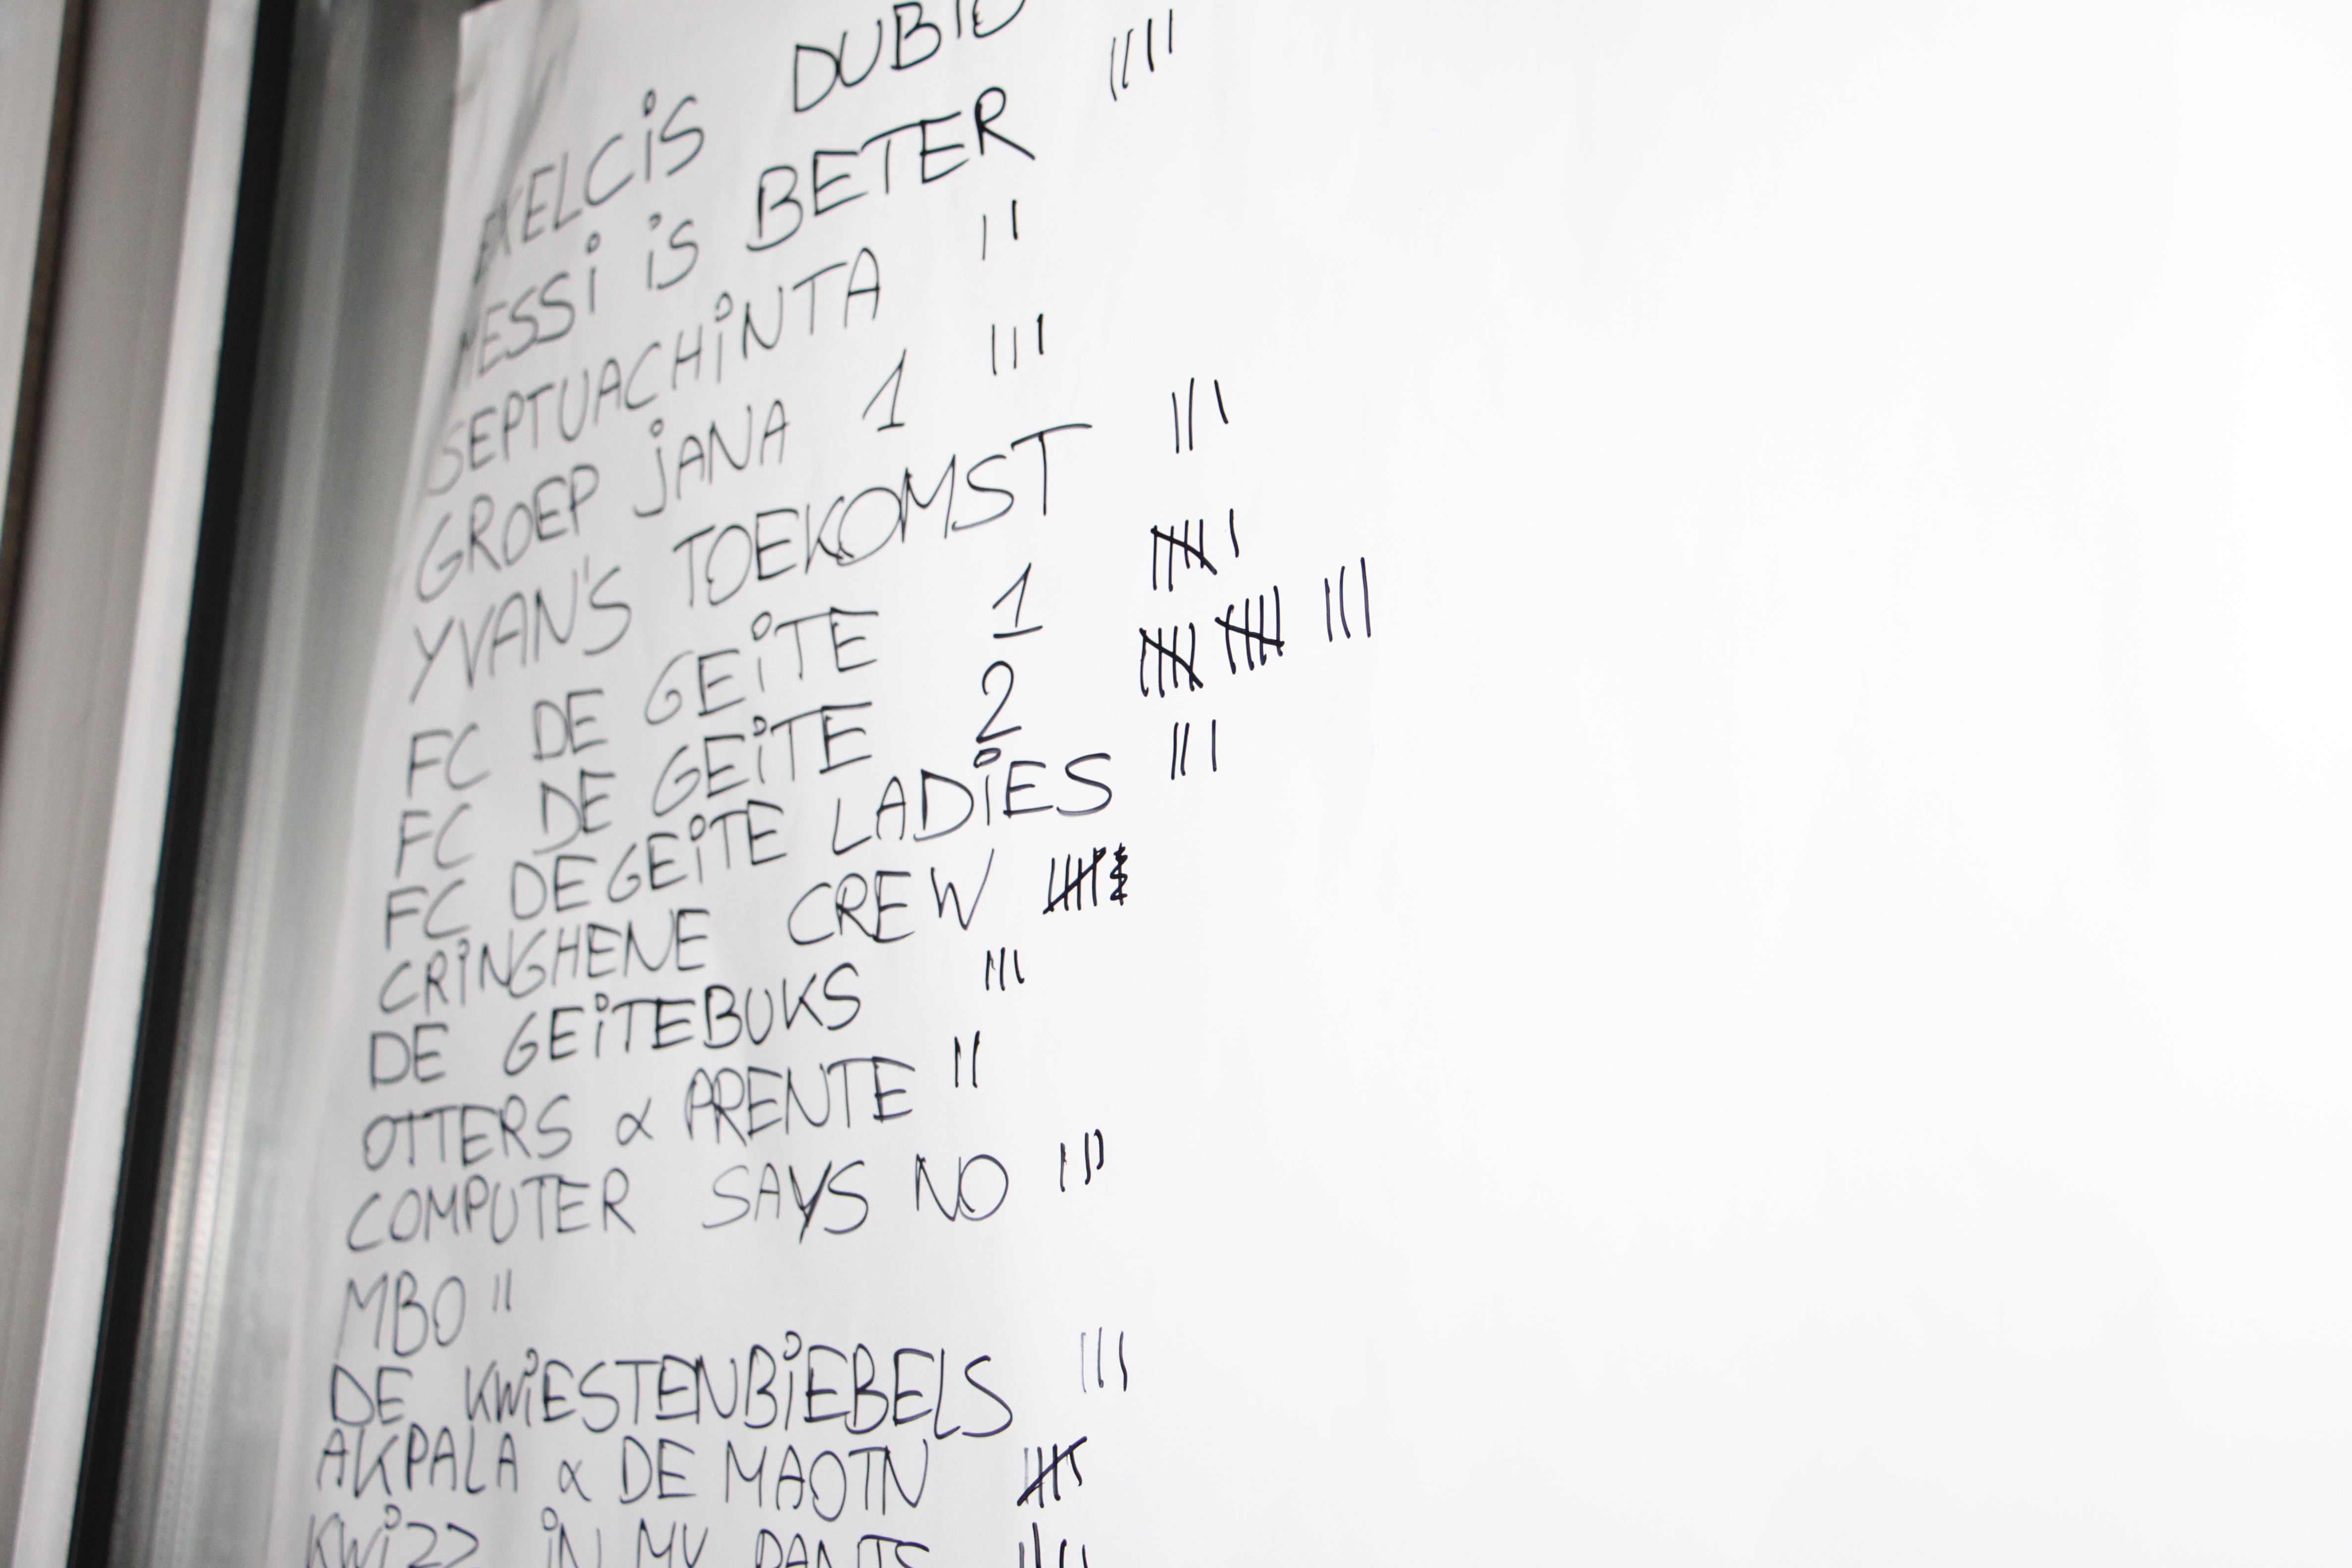 EXELCIS DUBIO
MESSI IS BETER ||||
SEPTUACHINTA ||
GROEP JANA 1 |||
YVAN'S TOEKOMST |||
FC DE GEITE 1 卌 |
FC DE GEITE 2 卌 卌 |||
FC DE GEITE LADIES |||
CRINGHENE CREW 卌
DE GEITEBUKS |||
OTTERS & PRENTE ||
COMPUTER SAYS NO |||
MBO ||
DE KWIESTENBIEBELS |||
AKPALA & DE MAOTN 卌
KWIZZ IN MY PANTS